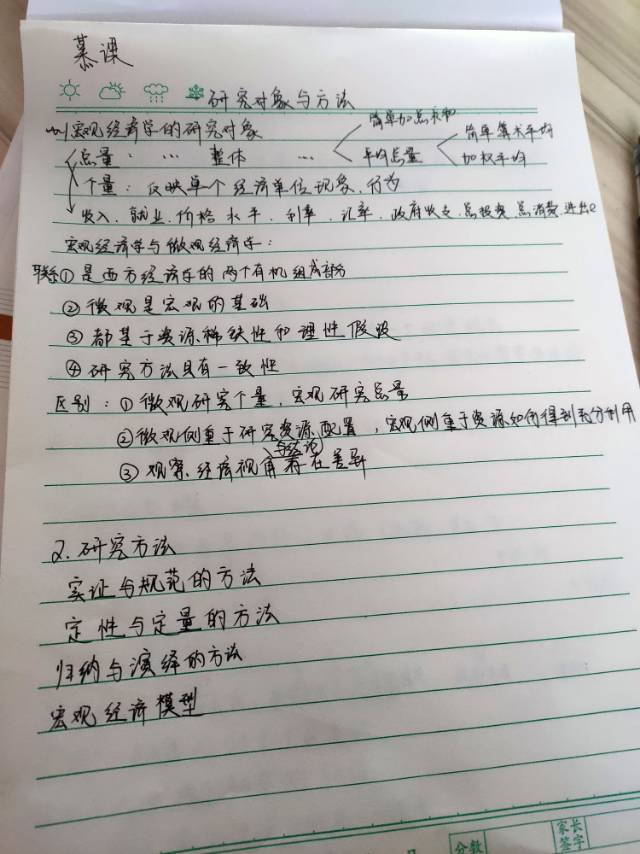 慕课
研究对象与方法
宏观经济学的研究对象
简单加总求和
简单算术平均
总量： … 整体 … 平均总量
加权平均
个量：反映单个经济单位现象、行为
收入、就业、价格水平、利率、汇率、政府收支、总投资、总消费、进出口
宏观经济学与微观经济学：
联系①是西方经济学的两个有机组成部分
②微观是宏观的基础
③都基于资源稀缺性和理性假设
④研究方法具有一致性
区别：①微观研究个量，宏观研究总量
②微观侧重于研究资源配置，宏观侧重于资源如何得到充分利用
与结论
③观察、经济视角存在差异
2.研究方法
实证与规范的方法
定性与定量的方法
归纳与演绎的方法
宏观经济模型
分数
家长
签字